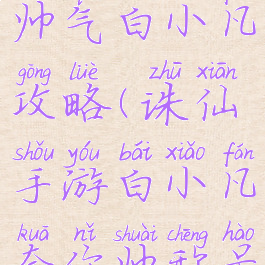 帅气白小凡
gōng lüè zhū xiān
攻略(诛仙
shǒu yóu bái xiǎo fán
手游白小凡
kuā nǐ shuài chēng hào
夸你帅称号